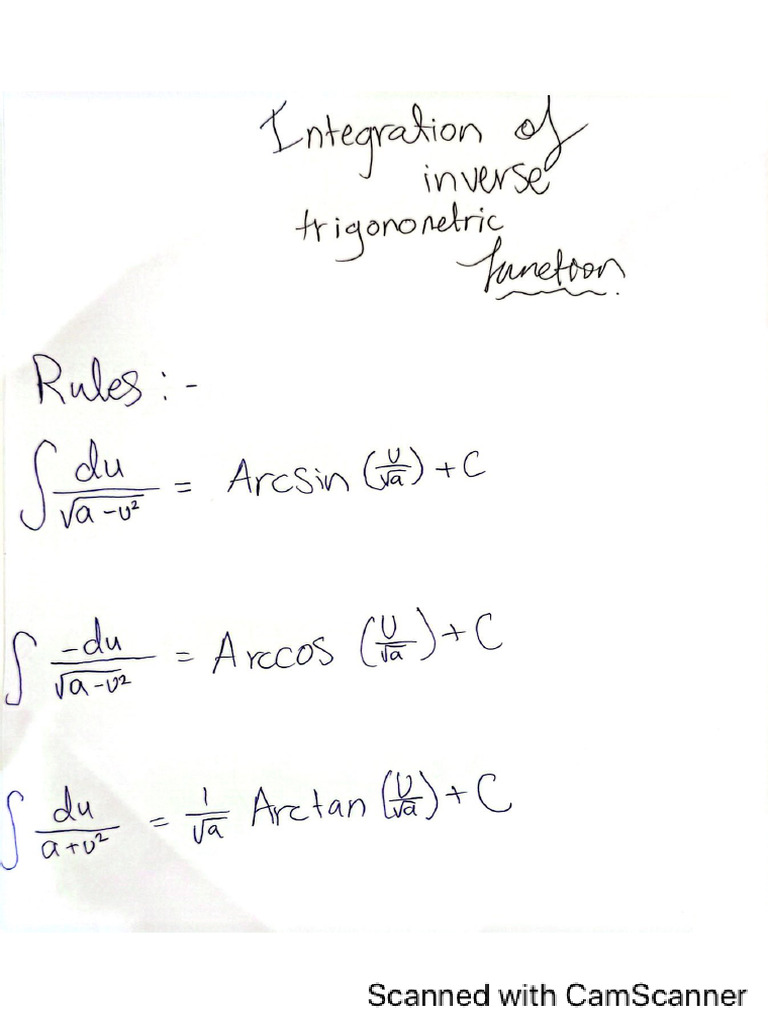 Integration of
inverse
trigonometric
function.
Rules :-
∫ du/√(a-u²) = Arcsin (u/√a) + C
∫ -du/√(a-u²) = Arccos (u/√a) + C
∫ du/(a+u²) = 1/√a Arctan (u/√a) + C
Scanned with CamScanner